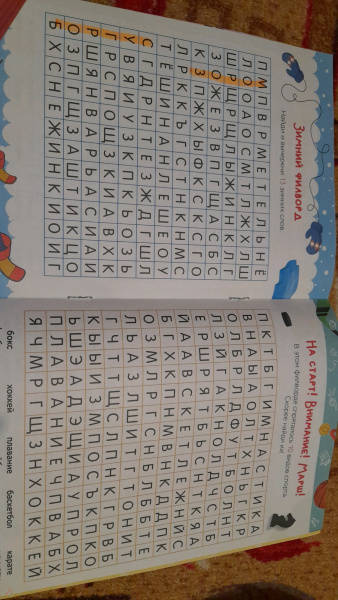 Зимний филворд
Найди и вычеркни 15 зимних слов.
П М П В Р М Е Т Е Л Ь Н Ё
Л О О А О С М Т Л Ж Х Л Ш
Ш Р Щ Р Щ Л Ы Ж И Н К Л Г
З О Ж Е З В П Г Щ А С Б С
К З П Ж Х Ы Ф К С К С Г О
Л Р К К Ъ Г С Т Н К Н М С
Т Ё Ш И Н А Н Л Е Ш Е О У
С Г Д Р Н Т Е З Ж Д Г Ш Л
У В Я И У З К П К Ь О З Ь
Г Р С П О Щ З К И А В Х К
Р Ш Я Н В А Р Ь А С И А Й
О З П Г Щ З А Ш Т И К Ц О
Б Х С Н Е Ж И Н К И О И Г
На старт! Внимание! Марш!
В этом филворде спрятались 10 видов спорта.
Скорее найди их!
П К Т Б Г И М Н А С Т И К А
В Н А Ы А О Л Т Х Н Ь Г К Р
О Л Б Р Д Ф У Т Б О Л Н Т
Л З Й Г Л К Н О Л Д Ч С Т Б
Е Р Ш Р Я Т Б Ь С Н Ж К Я А
Й А А В С К Е Т Л Е Ж Н Й С
Б Г Х К Л Н М В Н К Д Д П К
О З М Л Р Г Л Н Б Л Б Б Т Е
Л Ь А З Л Ш И Т Т Т О Н И Т
Г Ч Т Т Щ С Л Н Н К Г Р В Б
К Ы Ы И З М П О С Ъ К П К О
Ь Ш Э А Д Э Щ И А У П Р О Л
П Л А В А Н И Е Ч П В А Б Х
Я Ч М Р Г Щ З Н Х О К К Е Й
бокс хоккей плавание баскетбол карате